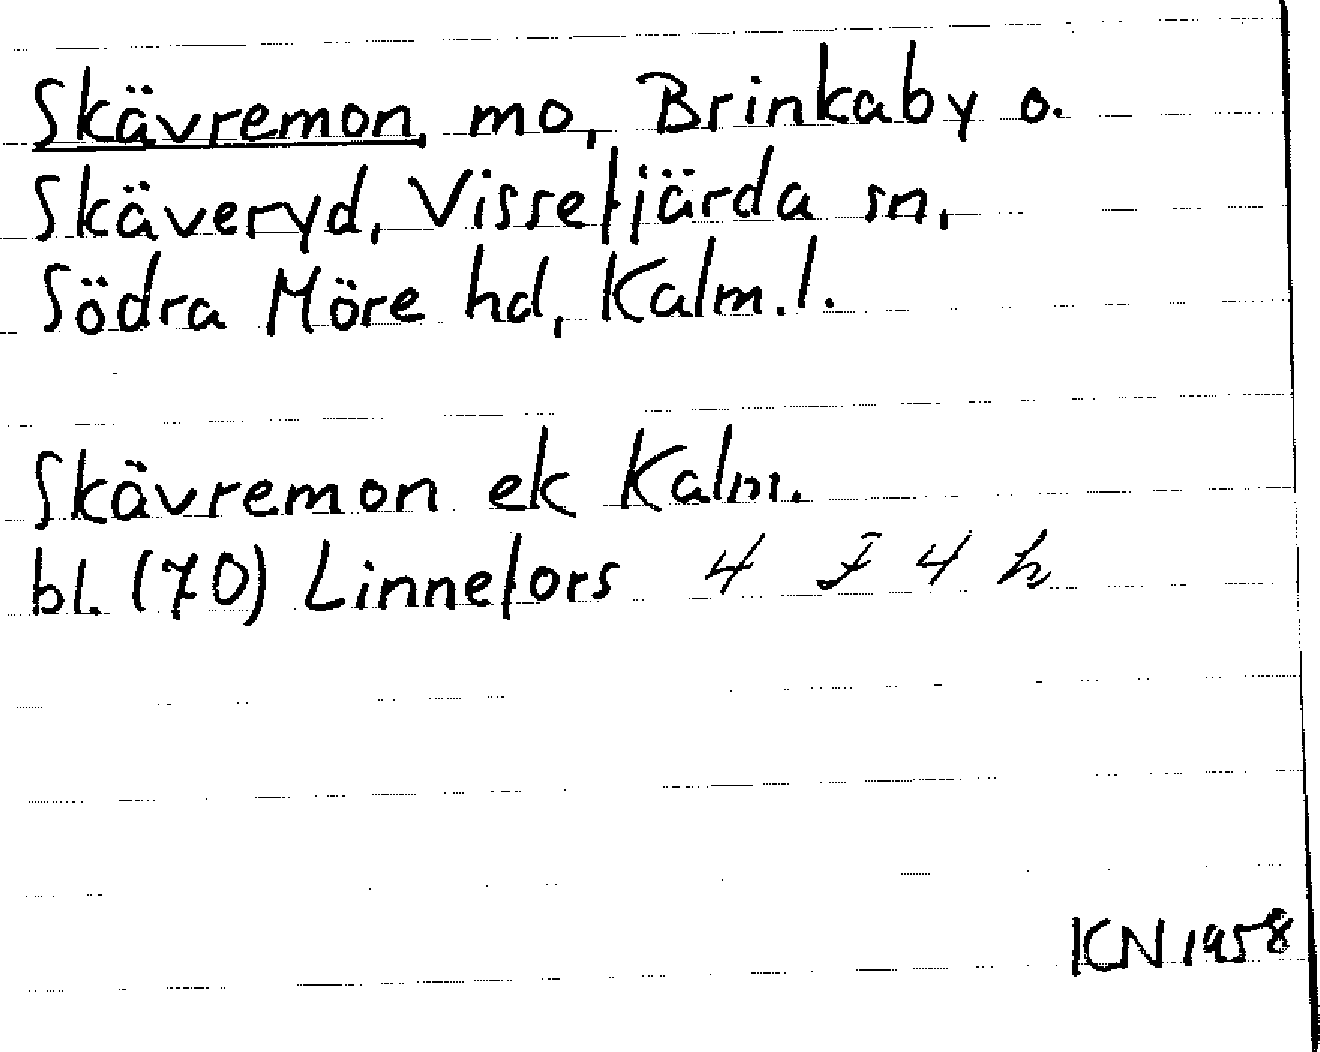 Skävremon, mo, Brinkaby o.
Skäveryd, Vissefjärda sn,
Södra Möre hd, Kalm.l.
Skävremon ek Kalm.
bl. (70) Linnefors 4 F 4 h
KN 1958